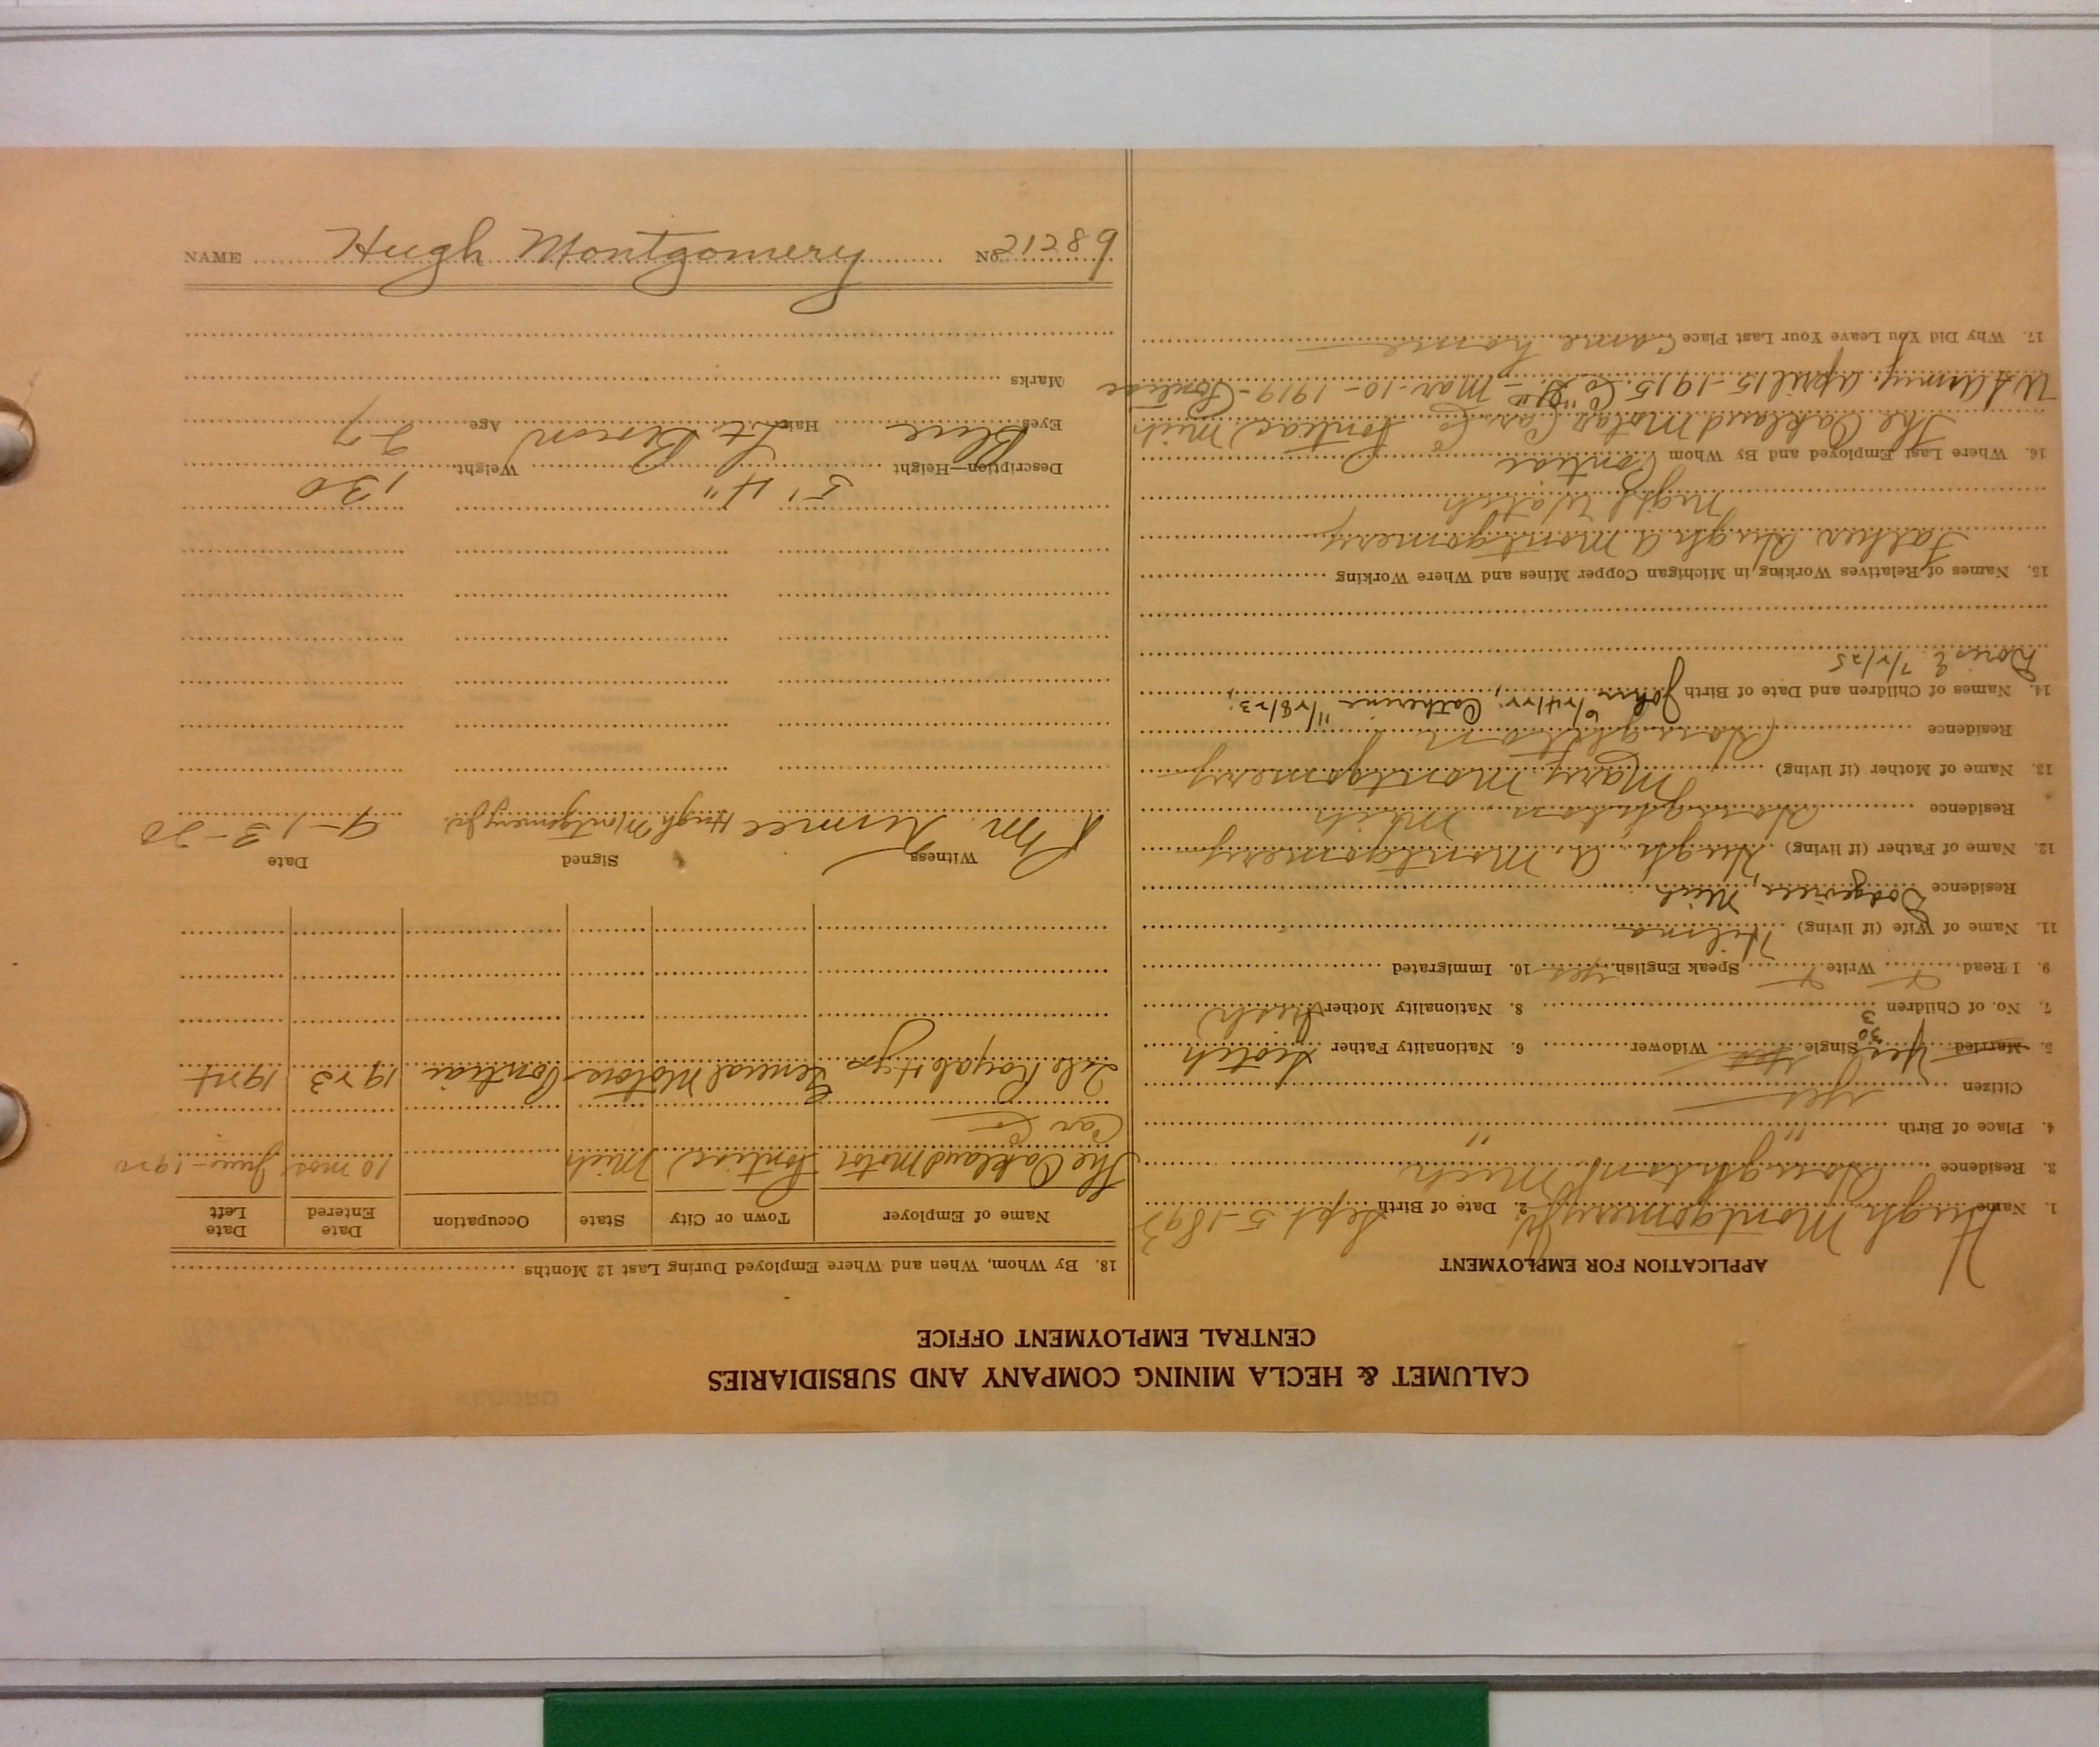 CALUMET & HECLA MINING COMPANY AND SUBSIDIARIES
CENTRAL EMPLOYMENT OFFICE
APPLICATION FOR EMPLOYMENT
1. Name Hugh Montgomery Jr. 2. Date of Birth Sept. 5-1893
3. Residence Houghton Mich
4. Place of Birth " "
Citizen Yes
5. Married Yes 30 Single Yes Widower 6. Nationality Father Scotch
7. No. of Children 3 8. Nationality Mother Irish
9. I Read Write Speak English yes 10. Immigrated
11. Name of Wife (if living) Hilma
Residence Dodgeville, Mich
12. Name of Father (if living) Hugh A. Montgomery
Residence Houghton Mich
13. Name of Mother (if living) Mary Montgomery
Residence Houghton
14. Names of Children and Date of Birth John 6/24/22, Catherine 11/28/23,
Doris E 7/2/25
15. Names of Relatives Working in Michigan Copper Mines and Where Working
Father Hugh A Montgomery
Night Watch
16. Where Last Employed and By Whom Pontiac
The Oakland Motor Car Co Pontiac Mich
U.S Army. April 15-1915 Co "G" - Mar-10-1919 - Pontiac
17. Why Did You Leave Your Last Place Came home
18. By Whom, When and Where Employed During Last 12 Months
Name of Employer Town or City State Occupation Date Entered Date Left
The Oakland Motor Pontiac Mich 10 mos June-1920
Car Co
General Motors Pontiac 1923 1924
Witness Signed Date
Hugh Montgomery Jr. 9-13-20
Description—Height 5' 4" Weight 130
Eyes Blue Hair Lt. Brown Age 27
Marks
NAME Hugh Montgomery No. 21289